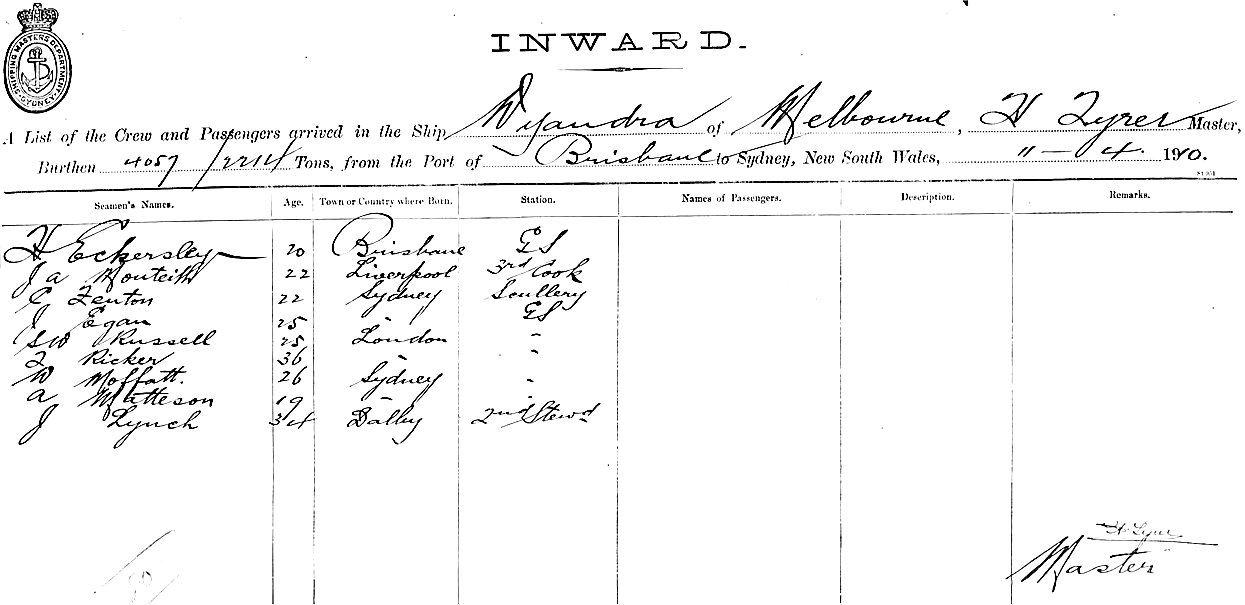 SHIPPING MASTERS DEPARTMENT
SYDNEY
INWARD.
A List of the Crew and Passengers arrived in the Ship Wyandra of Melbourne, H Lyrer Master,
Burthen 4057 / 2214 Tons, from the Port of Brisbane to Sydney, New South Wales, 11 – 4. 1910.
Seamen's Names. Age. Town or Country where Born. Station. Names of Passengers. Description. Remarks.
H Eckersley 20 Brisbane GS
J A Monteith 22 Liverpool 3rd Cook
C Fenton 22 Sydney Scullery
J Egan 25 " GS
SW Russell 25 London "
F Ricker 36 " "
W Moffatt. 26 Sydney "
A Matteson 19 "
J Lynch 34 Dalby 2nd Stewd
Master